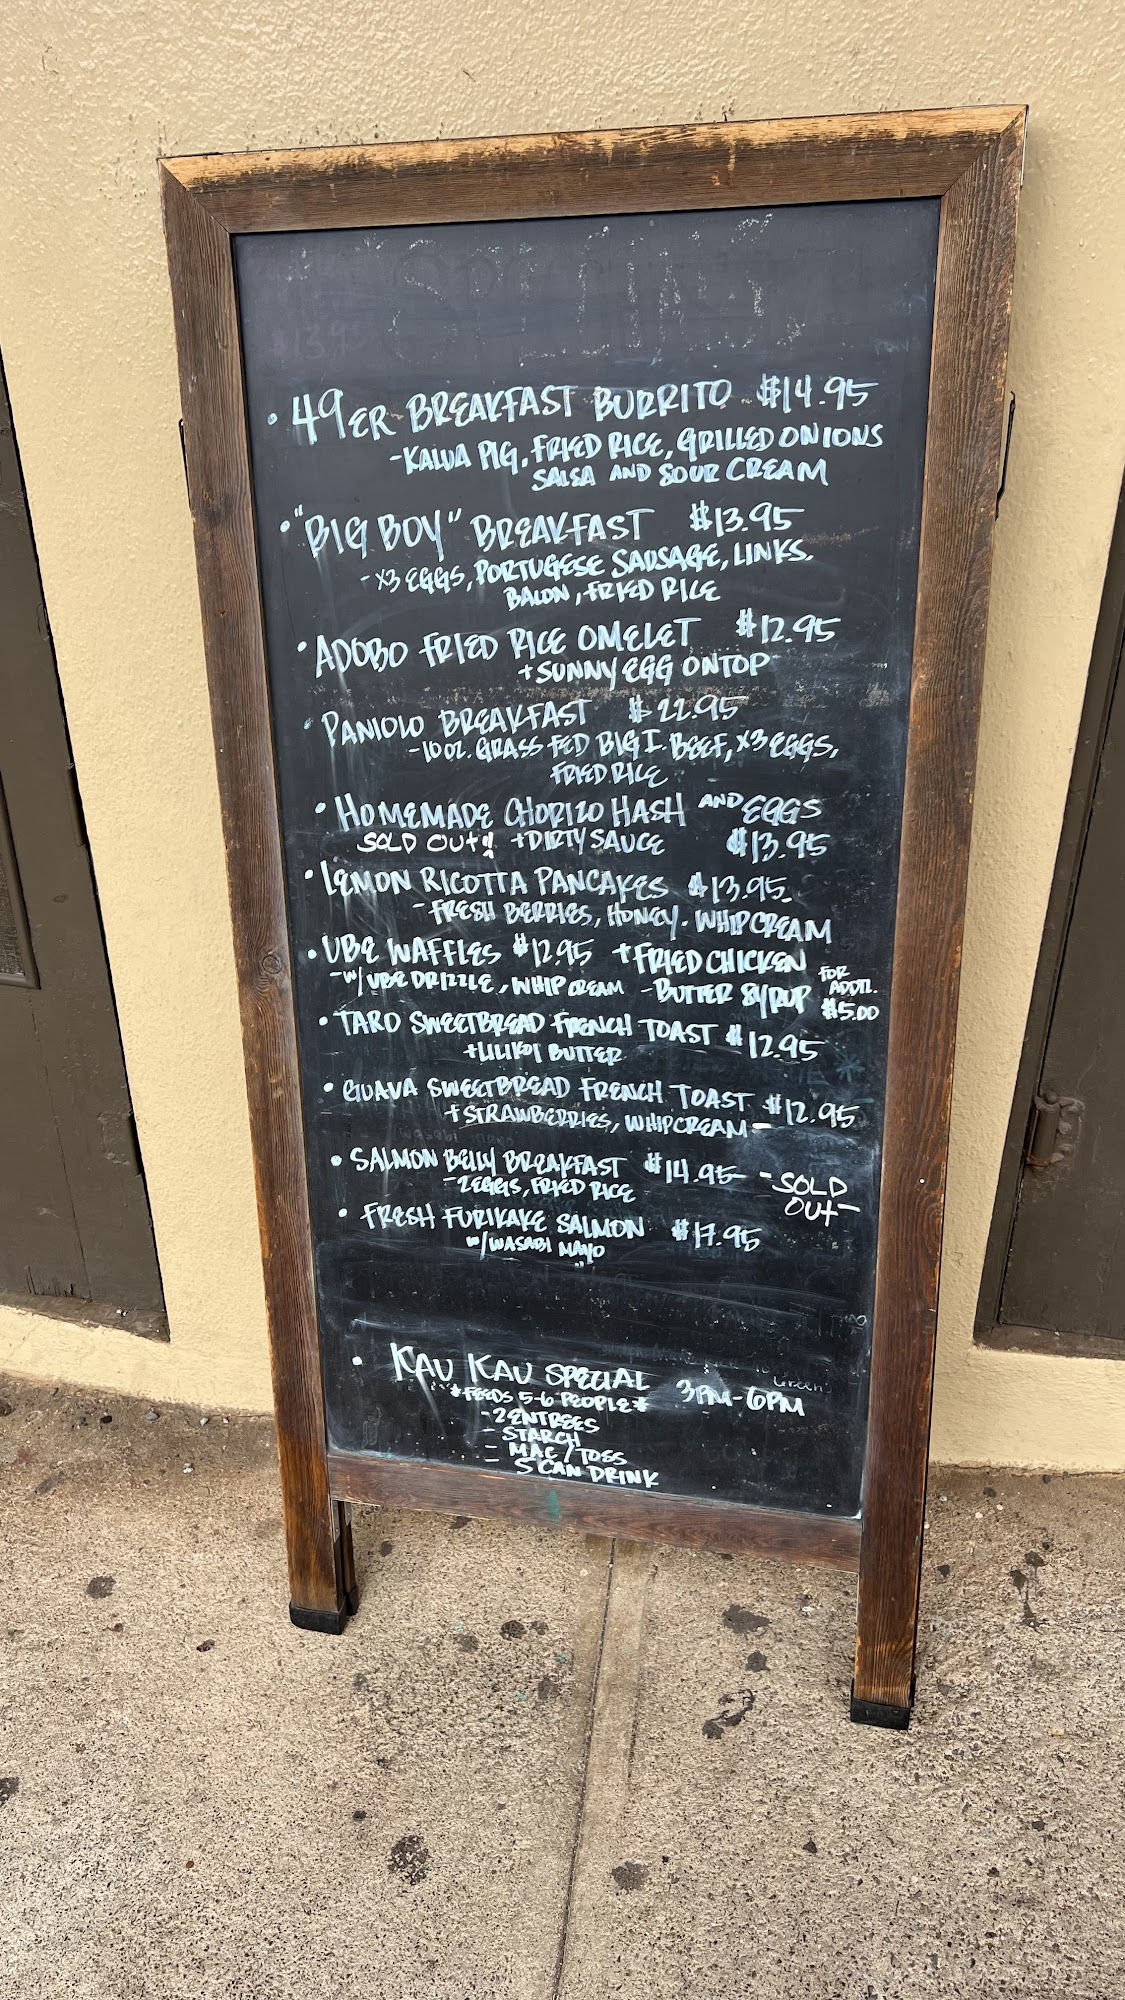 SPECIALS
• 49ER BREAKFAST BURRITO $14.95
-KALUA PIG, FRIED RICE, GRILLED ONIONS
SALSA AND SOUR CREAM
• "BIG BOY" BREAKFAST $13.95
-X3 EGGS, PORTUGESE SAUSAGE, LINKS.
BACON, FRIED RICE
• ADOBO FRIED RICE OMELET $12.95
+SUNNY EGG ON TOP
• PANIOLO BREAKFAST $22.95
-10 OZ. GRASS FED BIG I. BEEF, X3 EGGS,
FRIED RICE
• HOMEMADE CHORIZO HASH AND EGGS
SOLD OUT!! +DIRTY SAUCE $13.95
• LEMON RICOTTA PANCAKES $13.95
-FRESH BERRIES, HONEY. WHIPCREAM
• UBE WAFFLES $12.95 +FRIED CHICKEN
-W/ UBE DRIZZLE, WHIP CREAM -BUTTER SYRUP FOR ADDTL. $5.00
• TARO SWEETBREAD FRENCH TOAST $12.95
+LILIKOI BUTTER
• GUAVA SWEETBREAD FRENCH TOAST $12.95
+STRAWBERRIES, WHIPCREAM-
• SALMON BELLY BREAKFAST $14.95 -SOLD OUT-
-2 EGGS, FRIED RICE
• FRESH FURIKAKE SALMON $17.95
W/ WASABI MAYO
• KAU KAU SPECIAL 3PM-6PM
*FEEDS 5-6 PEOPLE*
-2 ENTREES
-STARCH
-MAC/TOSS
-5 CAN DRINK